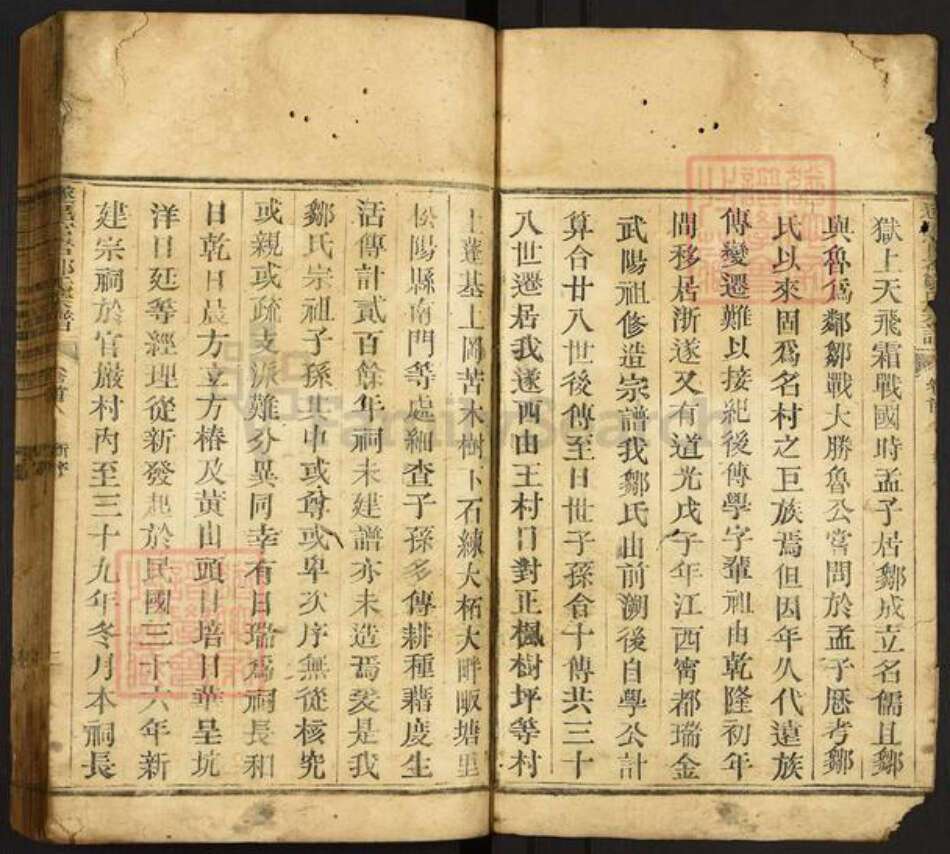 獄上天飛霜戰國時孟子居鄒成立名儒且鄒
與魯爲鄰鄒戰大勝魯公嘗問於孟子歷考鄒
氏以來固爲名村之巨族焉但因年久代遠族
傳變遷難以接紀後傳學字輩祖由乾隆初年
間移居浙遂又有道光戊午年江西甯都瑞金
武陽祖修造宗譜我鄒氏由前溯後自學公計
算合廿八世後傳至日世子孫合十傳共三十
八世遷居我遂西由王村口對正楓樹坪等村
上蓬基上岡苦木樹下石練大柘大畔畈塘里
松陽縣南門等處細查子孫多傳耕種藉度生
活傳計貳百餘年祠未建譜亦未造焉爰是我
鄒氏宗祖子孫其中或尊或卑次序無從核究
或親或疏支派難分異同幸有日瑞爲祠長和
日乾日晨方立方椿及黃山頭日培日華呈坑
洋日廷等經理從新發起於民國三十六年新
建宗祠於官巖村內至三十九年冬月本祠長